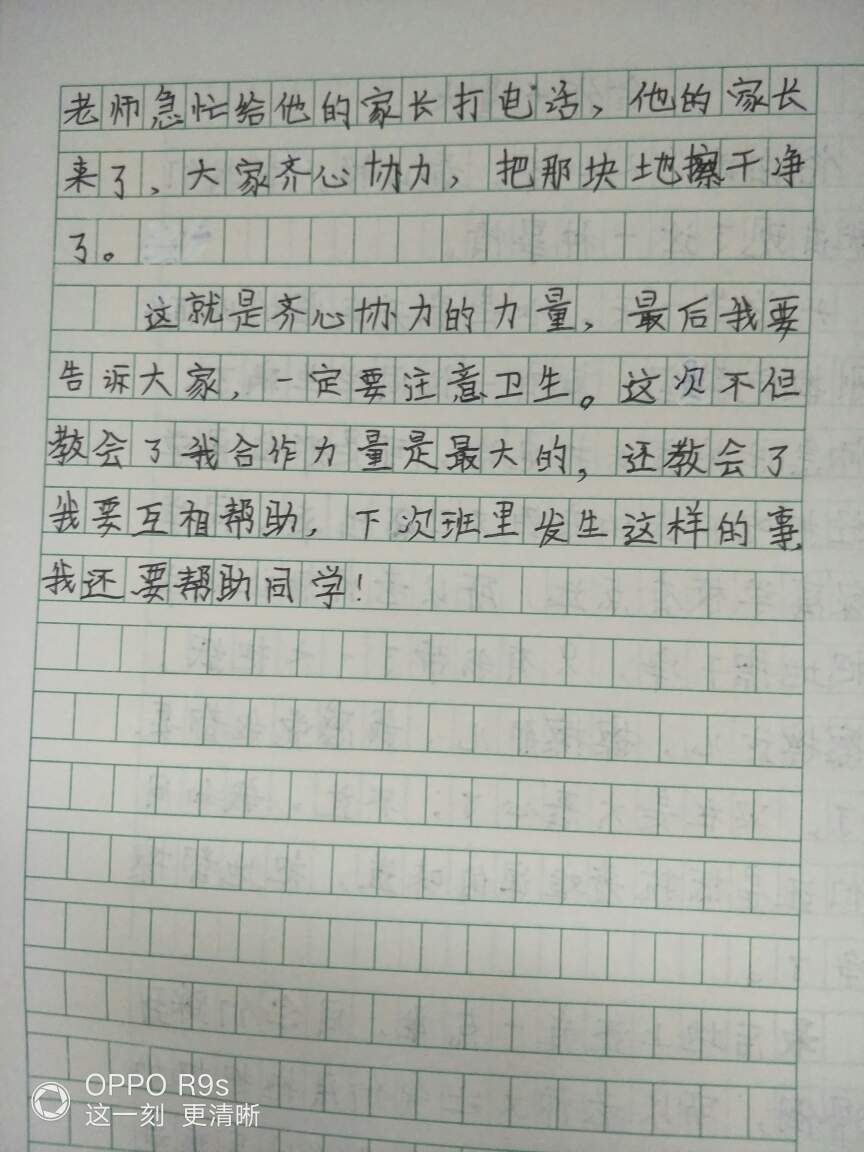 老师急忙给他的家长打电话，他的家长
来了，大家齐心协力，把那块地擦干净
了。
这就是齐心协力的力量，最后我要
告诉大家，一定要注意卫生。这次不但
教会了我合作力量是最大的，还教会了
我要互相帮助，下次班里发生这样的事，
我还要帮助同学！
OPPO R9s
这一刻 更清晰